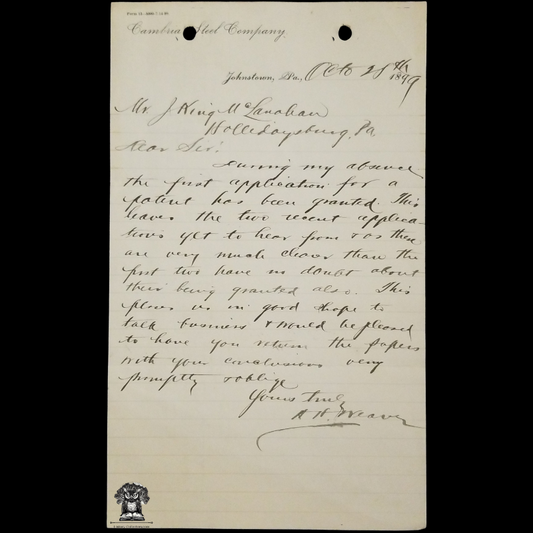 Cambria Steel Company.
Johnstown, Pa., Oct 28th 1899
Mr. J King McLanahan
Hollidaysburg, Pa
Dear Sir:
During my absence
the first application for a
patent has been granted. This
leaves the two recent applica-
tions yet to hear from & as these
are very much clearer than the
first two have no doubt about
their being granted also. This
places us in good shape to
talk business & would be pleased
to have you return the papers
with your conclusions very
promptly & oblige
Yours Truly
H. Weaver